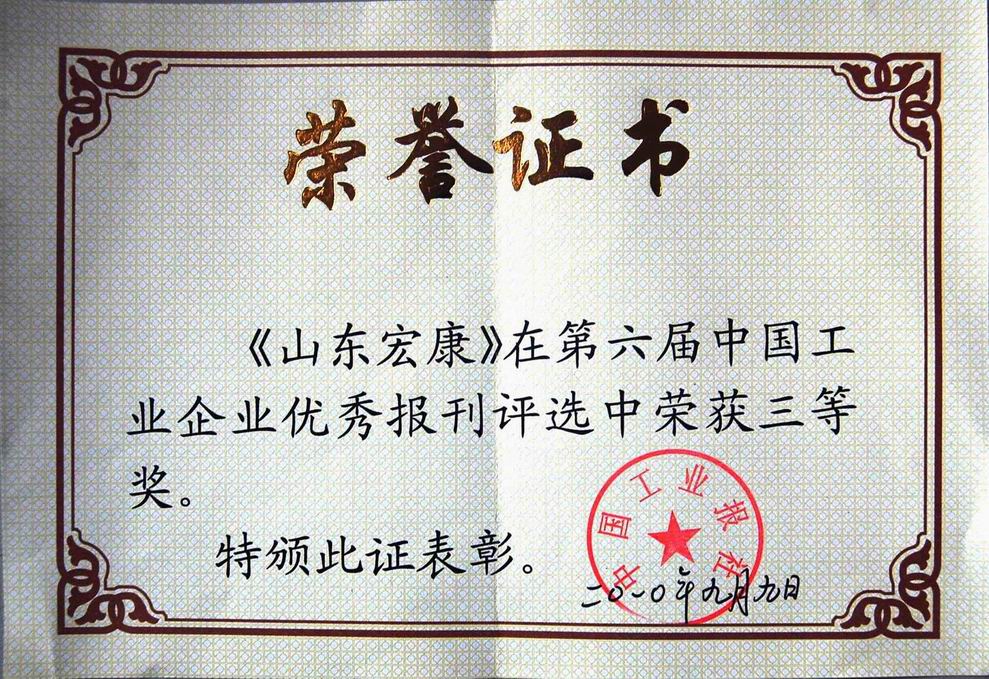 荣誉证书
《山东宏康》在第六届中国工
业企业优秀报刊评选中荣获三等
奖。
特颁此证表彰。
中国工业报社
二〇一〇年九月九日